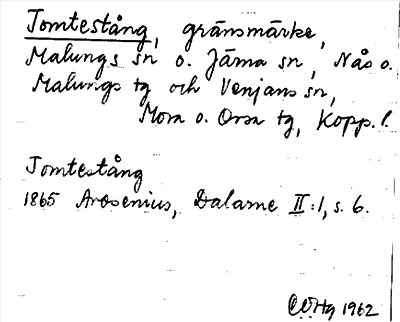 Tomtestång, gränsmärke,
Malungs sn o. Järna sn, Nås o.
Malungs tg och Venjans sn,
Mora o. Orsa tg, Kopp. l.
Tomtestång
1865 Arosenius, Dalarne II:1, s. 6.
1962